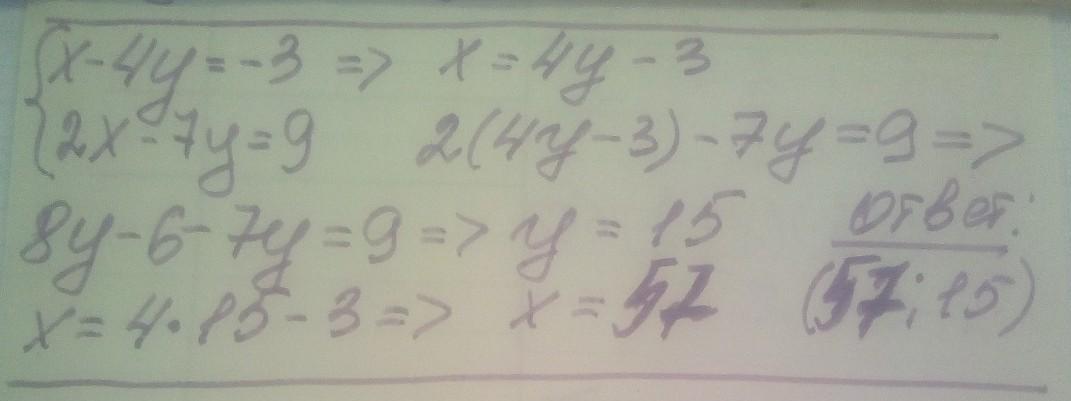 { x-4y=-3 => x=4y-3
2x-7y=9 2(4y-3)-7y=9=>
8y-6-7y=9=> y=15 Ответ:
x=4·15-3=> x=57 (57; 15)